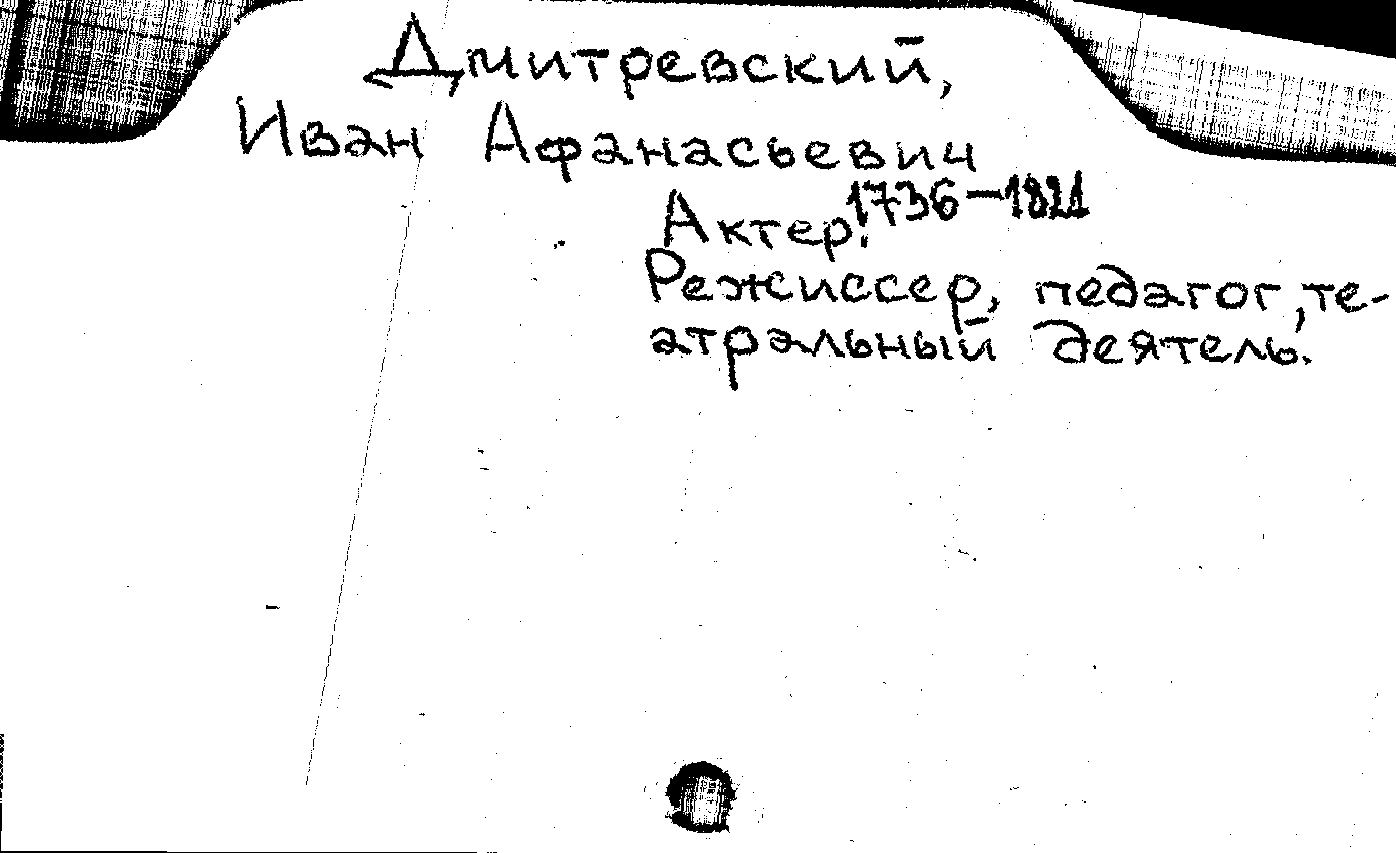 Дмитревский,
Иван Афанасьевич
1736-1821
Актер.
Режиссер, педагог, те-
атральный деятель.